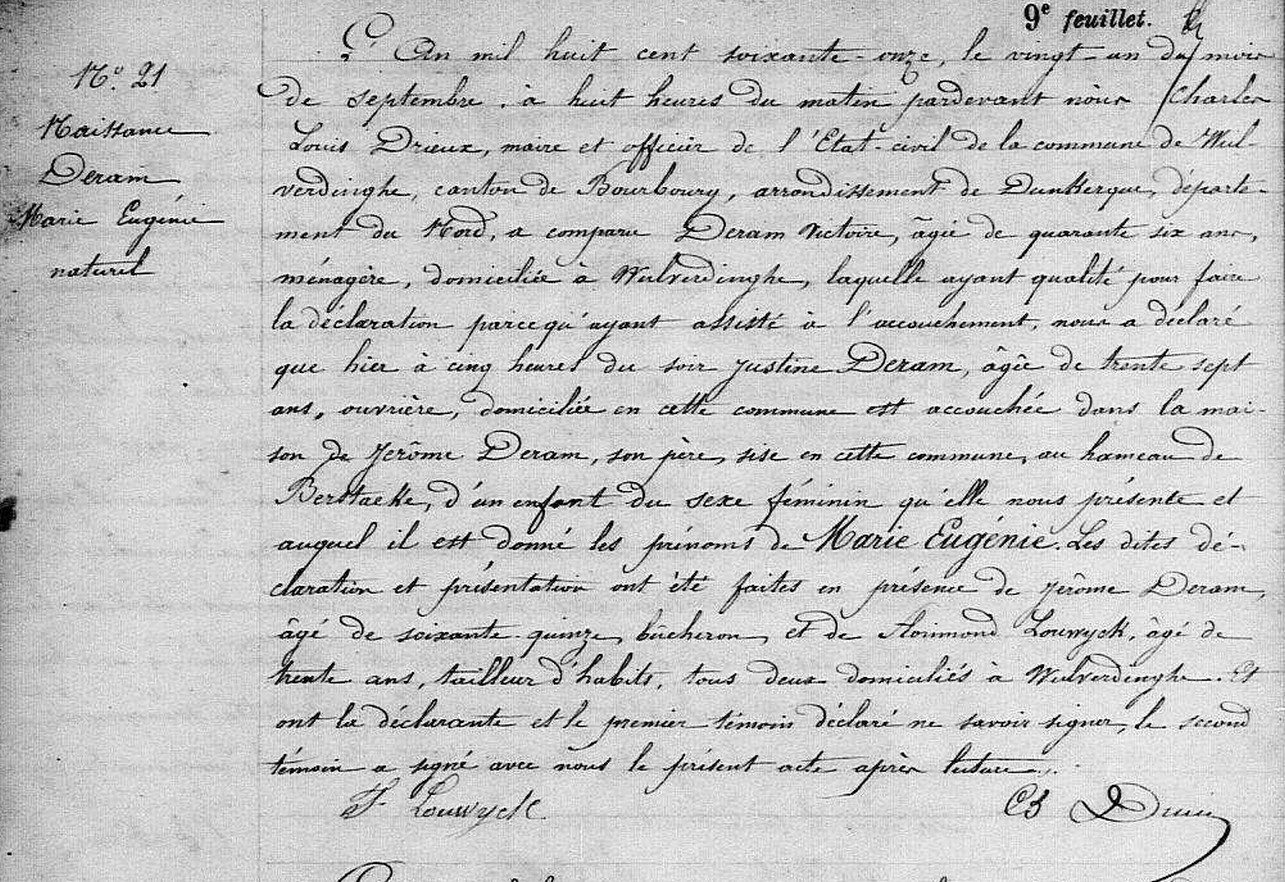 9e feuillet.
N.° 21
Naissance
Deram
Marie Eugénie
naturel
L'An mil huit cent soixante-onze, le vingt-un du mois
de septembre, à huit heures du matin pardevant nous Charles
Louis Drieux, maire et officier de l'Etat-civil de la commune de Wul-
verdinghe, canton de Bourbourg, arrondissement de Dunkerque, départe-
ment du Nord, a comparu Deram Victoire, âgée de quarante six ans,
ménagère, domiciliée à Wulverdinghe, laquelle ayant qualité pour faire
la déclaration parcequ'ayant assisté à l'accouchement, nous a déclaré
que hier à cinq heures du soir Justine Deram, âgée de trente sept
ans, ouvrière, domiciliée en cette commune est accouchée dans la mai-
son de Jerôme Deram, son père, sise en cette commune, au hameau de
Berstacke, d'un enfant du sexe féminin qu'elle nous présente et
auquel il est donné les prénoms de Marie Eugénie. Les dites dé-
claration et présentation ont été faites en présence de Jerôme Deram,
âgé de soixante-quinze, bûcheron, et de Florimond Louwyck, âgé de
trente ans, tailleur d'habits, tous deux domiciliés à Wulverdinghe. Et
ont la déclarante et le premier témoin déclaré ne savoir signer, le second
témoin a signé avec nous le présent acte après lecture.
F. Louwyck
Ch Drieux